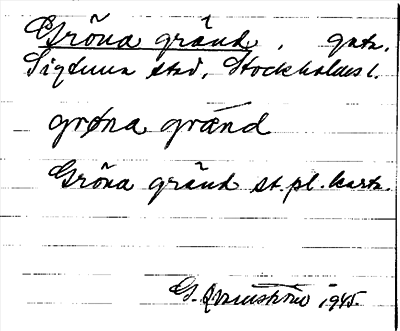 Gröna gränd. gata.
Sigtuna stad, Stockholms l.
grøna grænd
Gröna gränd st. pl. karta.
G. 1945.